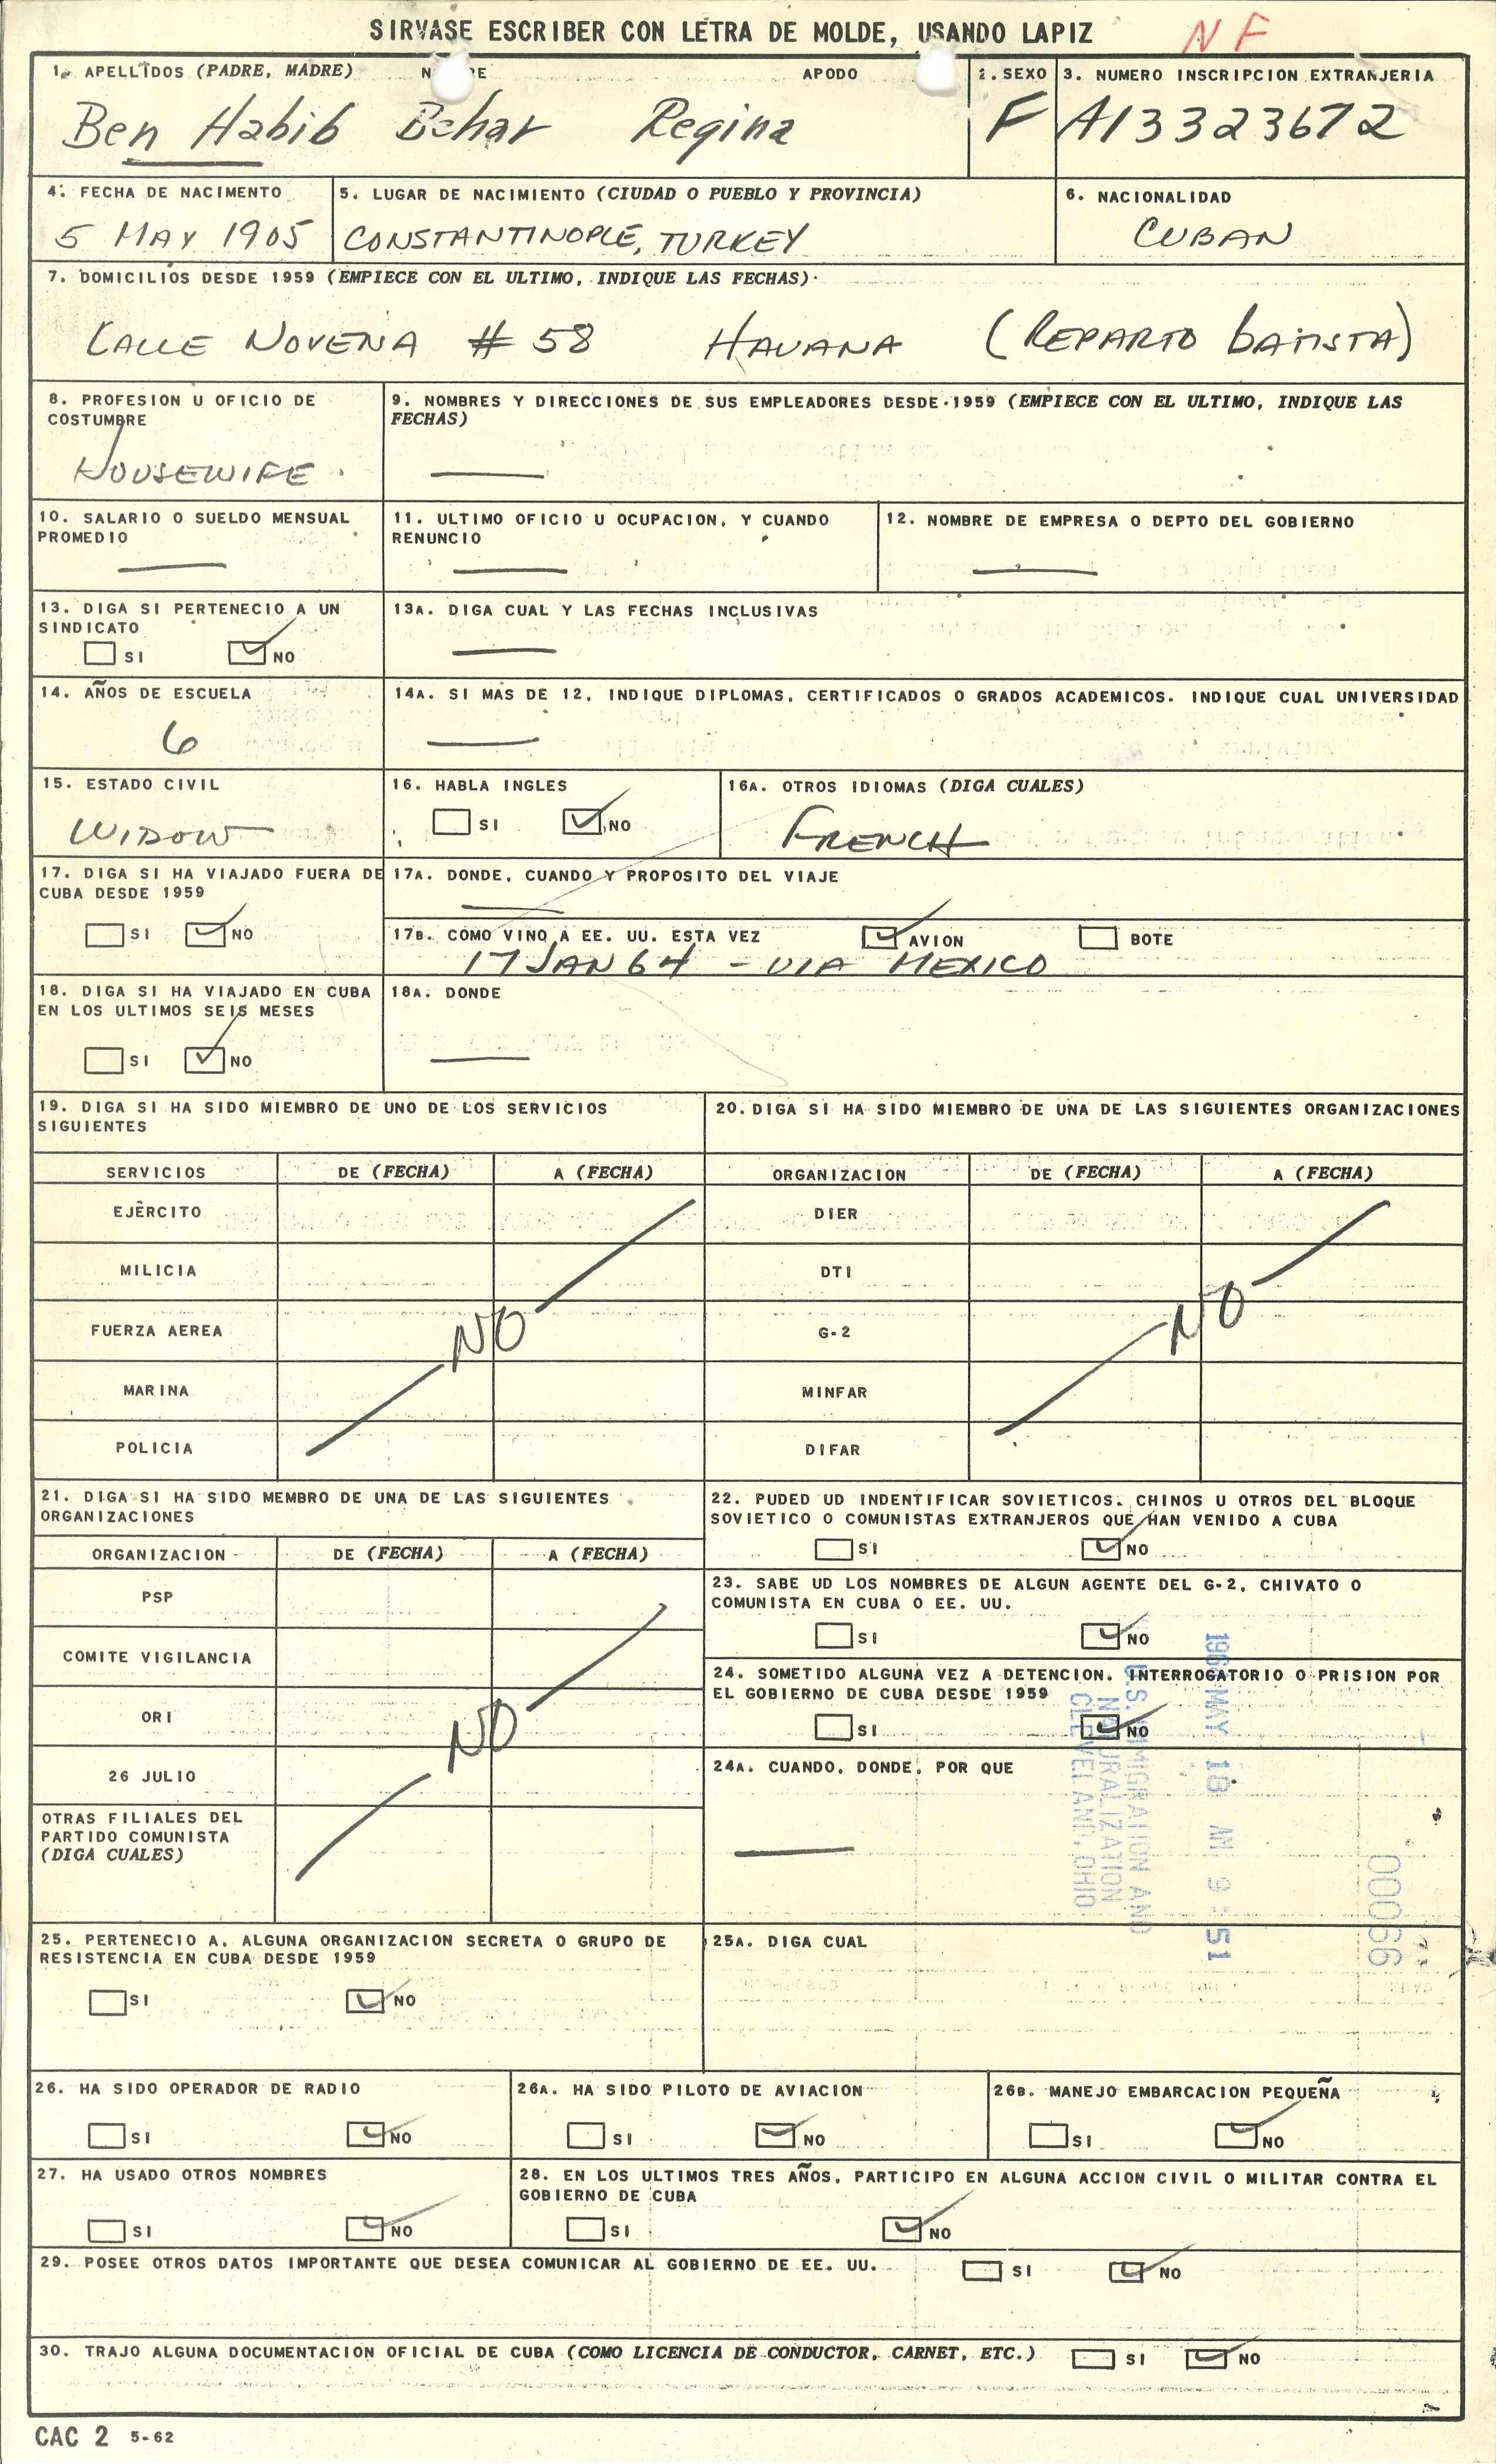 SIRVASE ESCRIBER CON LETRA DE MOLDE, USANDO LAPIZ
NF
1. APELLIDOS (PADRE, MADRE) APODO
2. SEXO
3. NUMERO INSCRIPCION EXTRANJERIA
Ben Habib Behar Regina
F
A13323672
4. FECHA DE NACIMENTO
5. LUGAR DE NACIMIENTO (CIUDAD O PUEBLO Y PROVINCIA)
6. NACIONALIDAD
5 MAY 1905
CONSTANTINOPLE, TURKEY
CUBAN
7. DOMICILIOS DESDE 1959 (EMPIECE CON EL ULTIMO, INDIQUE LAS FECHAS)
CALLE NOVENA # 58 HAVANA (REPARTO BATISTA)
8. PROFESION U OFICIO DE
COSTUMBRE
HOUSEWIFE
9. NOMBRES Y DIRECCIONES DE SUS EMPLEADORES DESDE 1959 (EMPIECE CON EL ULTIMO, INDIQUE LAS
FECHAS)
10. SALARIO O SUELDO MENSUAL
PROMEDIO
11. ULTIMO OFICIO U OCUPACION, Y CUANDO
RENUNCIO
12. NOMBRE DE EMPRESA O DEPTO DEL GOBIERNO
13. DIGA SI PERTENECIO A UN
SINDICATO
SI NO
13A. DIGA CUAL Y LAS FECHAS INCLUSIVAS
14. AÑOS DE ESCUELA
6
14A. SI MAS DE 12, INDIQUE DIPLOMAS, CERTIFICADOS O GRADOS ACADEMICOS. INDIQUE CUAL UNIVERSIDAD
15. ESTADO CIVIL
WIDOW
16. HABLA INGLES
SI NO
16A. OTROS IDIOMAS (DIGA CUALES)
FRENCH
17. DIGA SI HA VIAJADO FUERA DE
CUBA DESDE 1959
SI NO
17A. DONDE, CUANDO Y PROPOSITO DEL VIAJE
17B. COMO VINO A EE. UU. ESTA VEZ AVION BOTE
17 JAN 64 - VIA MEXICO
18. DIGA SI HA VIAJADO EN CUBA
EN LOS ULTIMOS SEIS MESES
SI NO
18A. DONDE
19. DIGA SI HA SIDO MIEMBRO DE UNO DE LOS SERVICIOS
SIGUIENTES
SERVICIOS DE (FECHA) A (FECHA)
EJÉRCITO
MILICIA
FUERZA AEREA
MARINA
POLICIA
NO
20. DIGA SI HA SIDO MIEMBRO DE UNA DE LAS SIGUIENTES ORGANIZACIONES
ORGANIZACION DE (FECHA) A (FECHA)
DIER
DTI
G-2
MINFAR
DIFAR
NO
21. DIGA SI HA SIDO MEMBRO DE UNA DE LAS SIGUIENTES
ORGANIZACIONES
ORGANIZACION DE (FECHA) A (FECHA)
PSP
COMITE VIGILANCIA
ORI
26 JULIO
OTRAS FILIALES DEL
PARTIDO COMUNISTA
(DIGA CUALES)
NO
22. PUDED UD INDENTIFICAR SOVIETICOS, CHINOS U OTROS DEL BLOQUE
SOVIETICO O COMUNISTAS EXTRANJEROS QUE HAN VENIDO A CUBA
SI NO
23. SABE UD LOS NOMBRES DE ALGUN AGENTE DEL G-2, CHIVATO O
COMUNISTA EN CUBA O EE. UU.
SI NO
24. SOMETIDO ALGUNA VEZ A DETENCION, INTERROGATORIO O PRISION POR
EL GOBIERNO DE CUBA DESDE 1959
SI NO
24A. CUANDO, DONDE, POR QUE
MAY 18 AM 9:51
U.S. IMMIGRATION AND
NATURALIZATION
CLEVELAND, OHIO
00066
25. PERTENECIO A. ALGUNA ORGANIZACION SECRETA O GRUPO DE
RESISTENCIA EN CUBA DESDE 1959
SI NO
25A. DIGA CUAL
26. HA SIDO OPERADOR DE RADIO
SI NO
26A. HA SIDO PILOTO DE AVIACION
SI NO
26B. MANEJO EMBARCACION PEQUEÑA
SI NO
27. HA USADO OTROS NOMBRES
SI NO
28. EN LOS ULTIMOS TRES AÑOS, PARTICIPO EN ALGUNA ACCION CIVIL O MILITAR CONTRA EL
GOBIERNO DE CUBA
SI NO
29. POSEE OTROS DATOS IMPORTANTE QUE DESEA COMUNICAR AL GOBIERNO DE EE. UU. SI NO
30. TRAJO ALGUNA DOCUMENTACION OFICIAL DE CUBA (COMO LICENCIA DE CONDUCTOR, CARNET, ETC.) SI NO
CAC 2 5-62